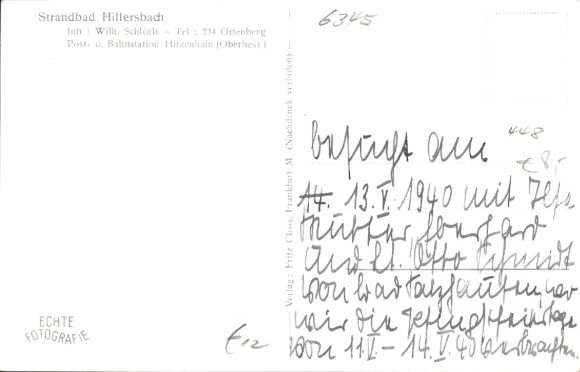 Strandbad Hillersbach
Inh : Wilh. Schlörb – Tel : 234 Ortenberg
Post- u. Bahnstation Hirzenhain (Oberhess.)
Verlag: Fritz Closs, Frankfurt M. (Nachdruck verboten)
6345
448
€ 8,-
besucht am
14. 13.V.1940 mit Ilse
Mutter, Eberhard
und Lt. Otto Schmidt
von Bad Salzhausen, wo
wir die Pfingstfeiertage
von 11.V – 14.V.40 verbrachten.
ECHTE
FOTOGRAFIE
€ 12